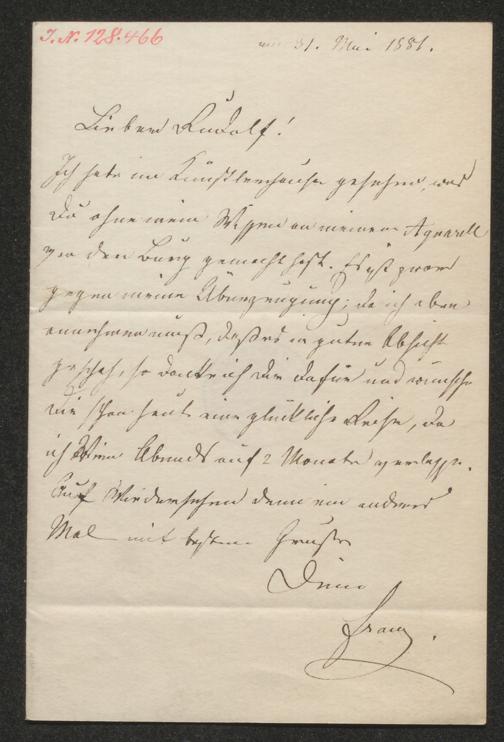 J. N. 128.466
31. Mai 1881.
Lieber Rudolf!
Ich habe im Künstlerhause gesehen was
Du ohne mein Wissen an meinem Aquarell
von der Burg gemacht hast. Es ist zwar
gegen meine Überzeugung; da ich aber
annehmen muß, daß es in guter Absicht
geschah, so danke ich Dir dafür und wünsche
Dir schon heute eine glückliche Reise, da
ich Wien Abends auf 2 Monate verlasse.
Auf Wiedersehen denn ein anderes
Mal mit besten Grüßen
Dein
Franz.